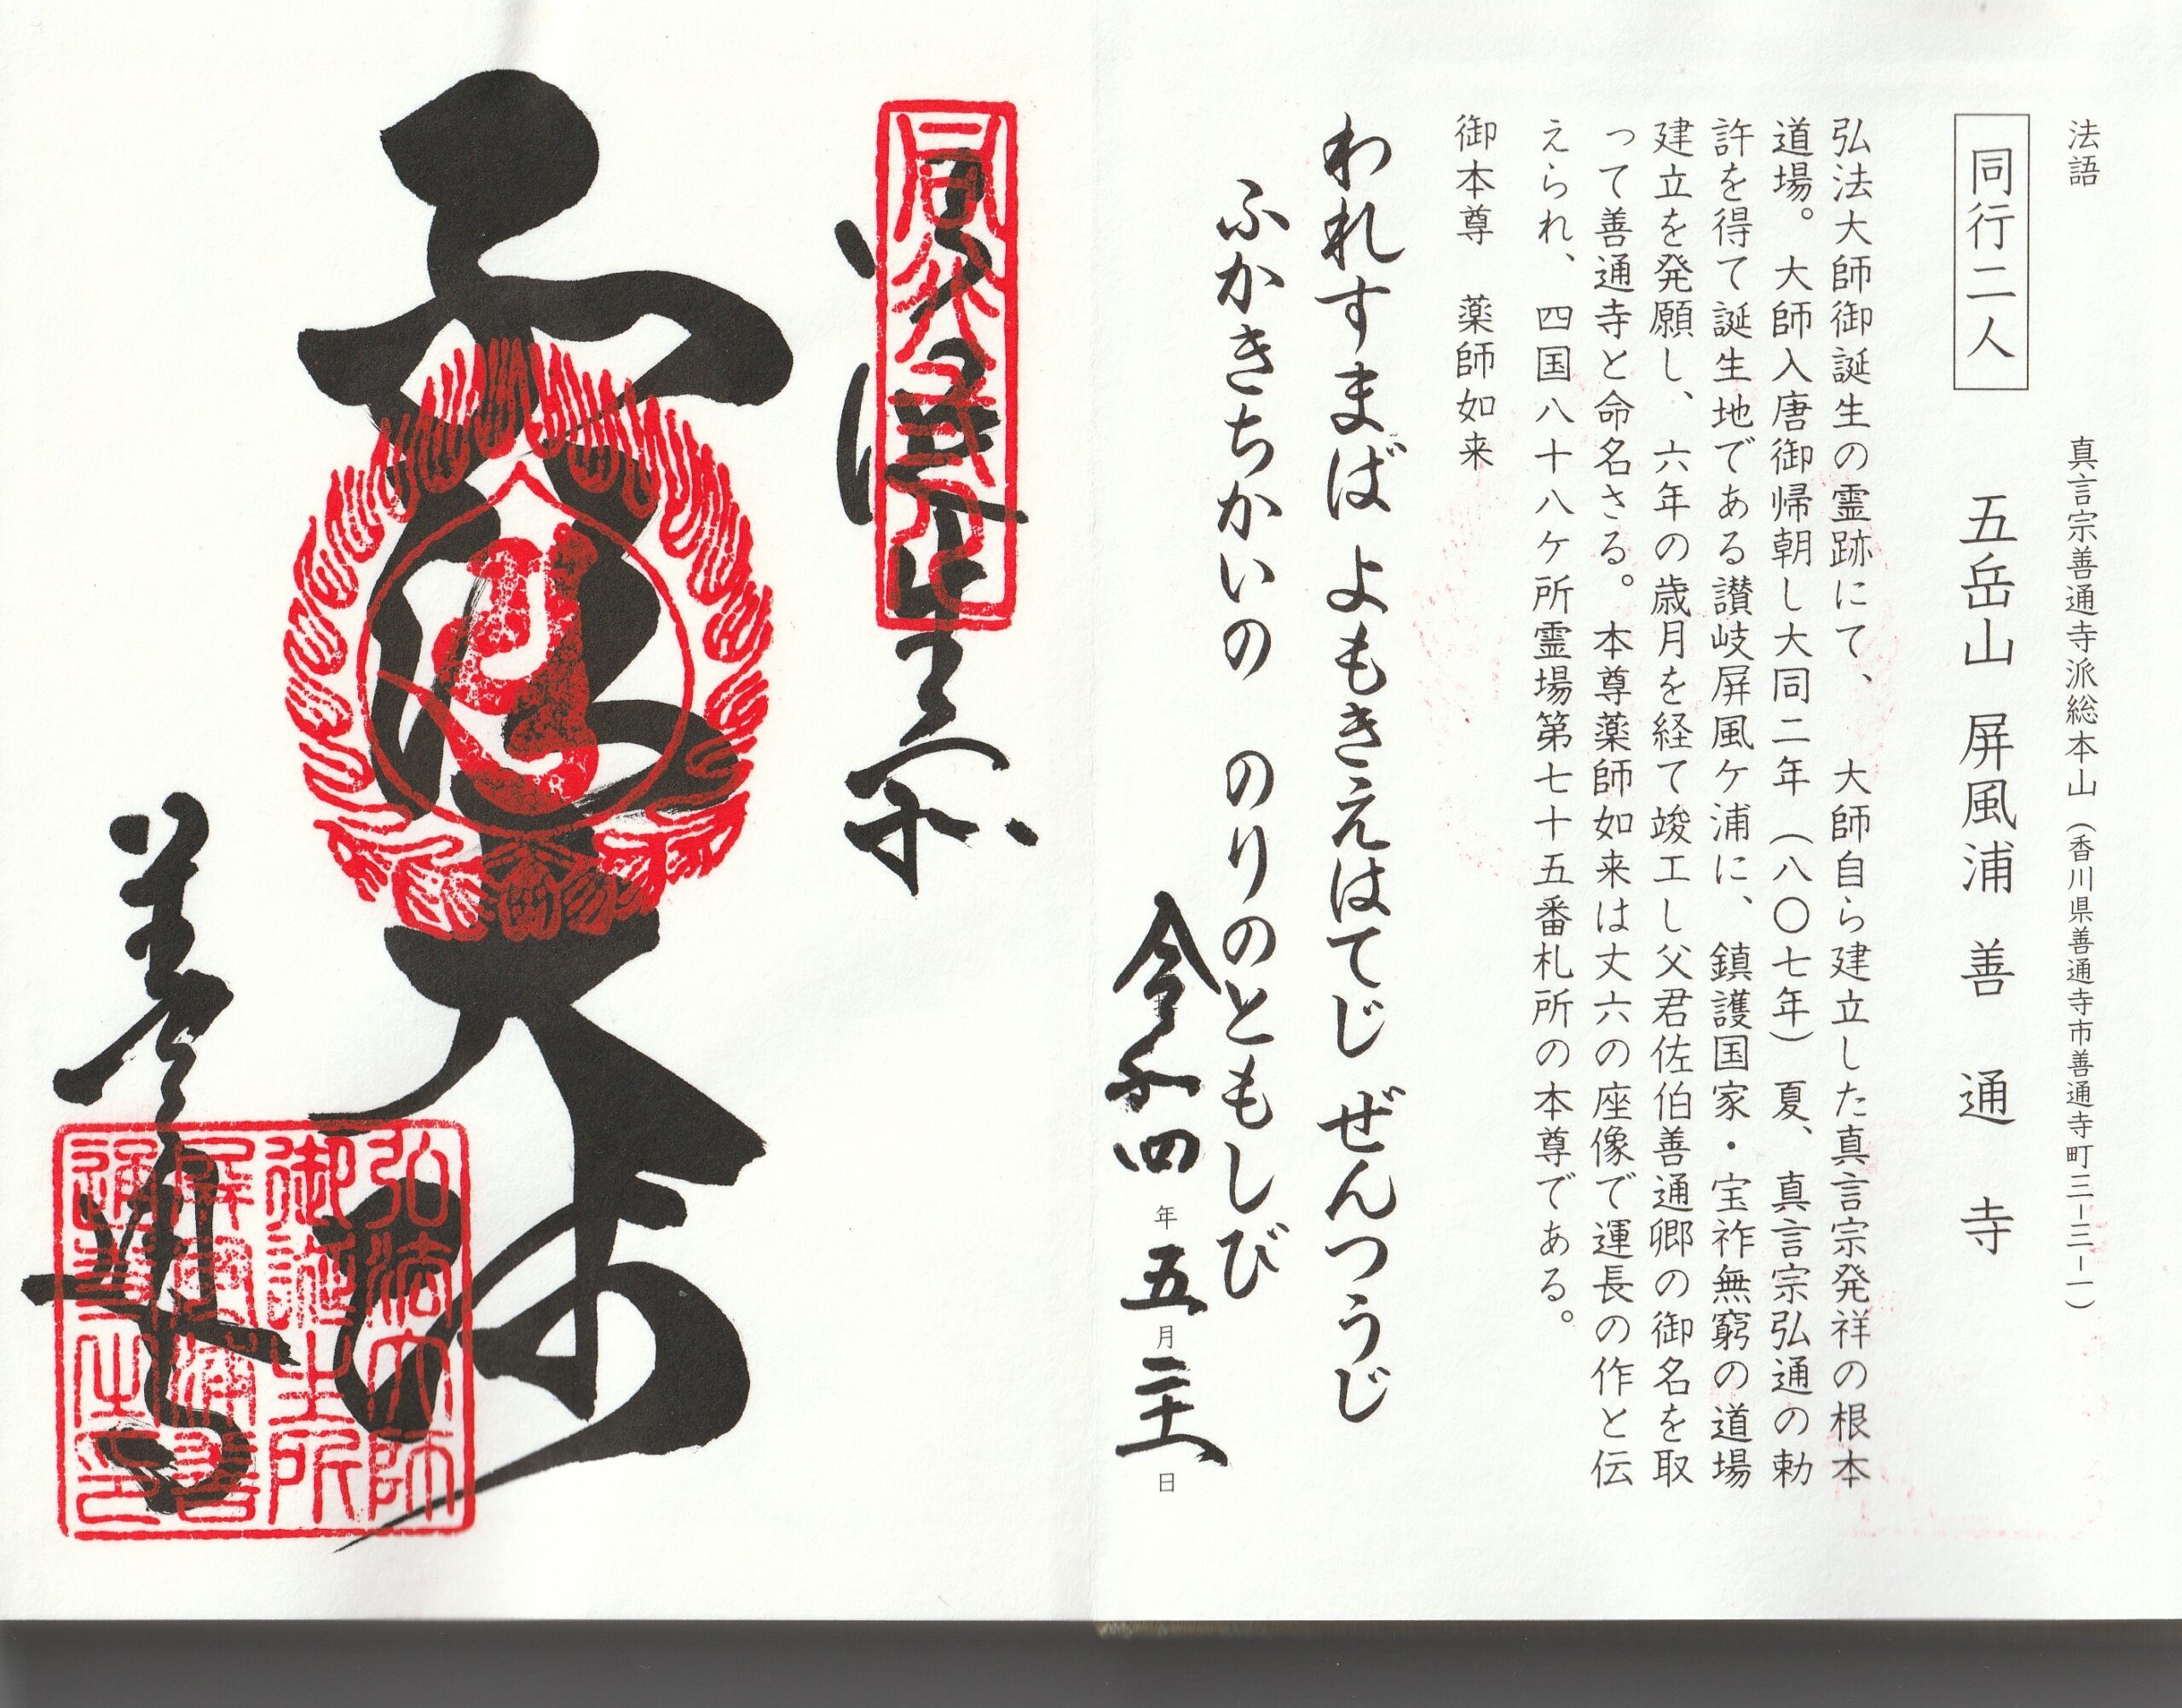 法語
真言宗善通寺派総本山（香川県善通寺市善通寺町三−三−一）
同行二人
五岳山 屏風浦 善通寺
弘法大師御誕生の霊跡にて、大師自ら建立した真言宗発祥の根本
道場。大師入唐御帰朝し大同二年（八〇七年）夏、真言宗弘通の勅
許を得て誕生地である讃岐屏風ケ浦に、鎮護国家・宝祚無窮の道場
建立を発願し、六年の歳月を経て竣工し父君佐伯善通卿の御名を取
って善通寺と命名さる。本尊薬師如来は丈六の座像で運長の作と伝
えられ、四国八十八ケ所霊場第七十五番札所の本尊である。
御本尊 薬師如来
われすまば よもきえはてじ ぜんつうじ
ふかきちかいの のりのともしび
令和四年五月二十一日
弘法大師
御誕生所
屏風浦善
通寺之印